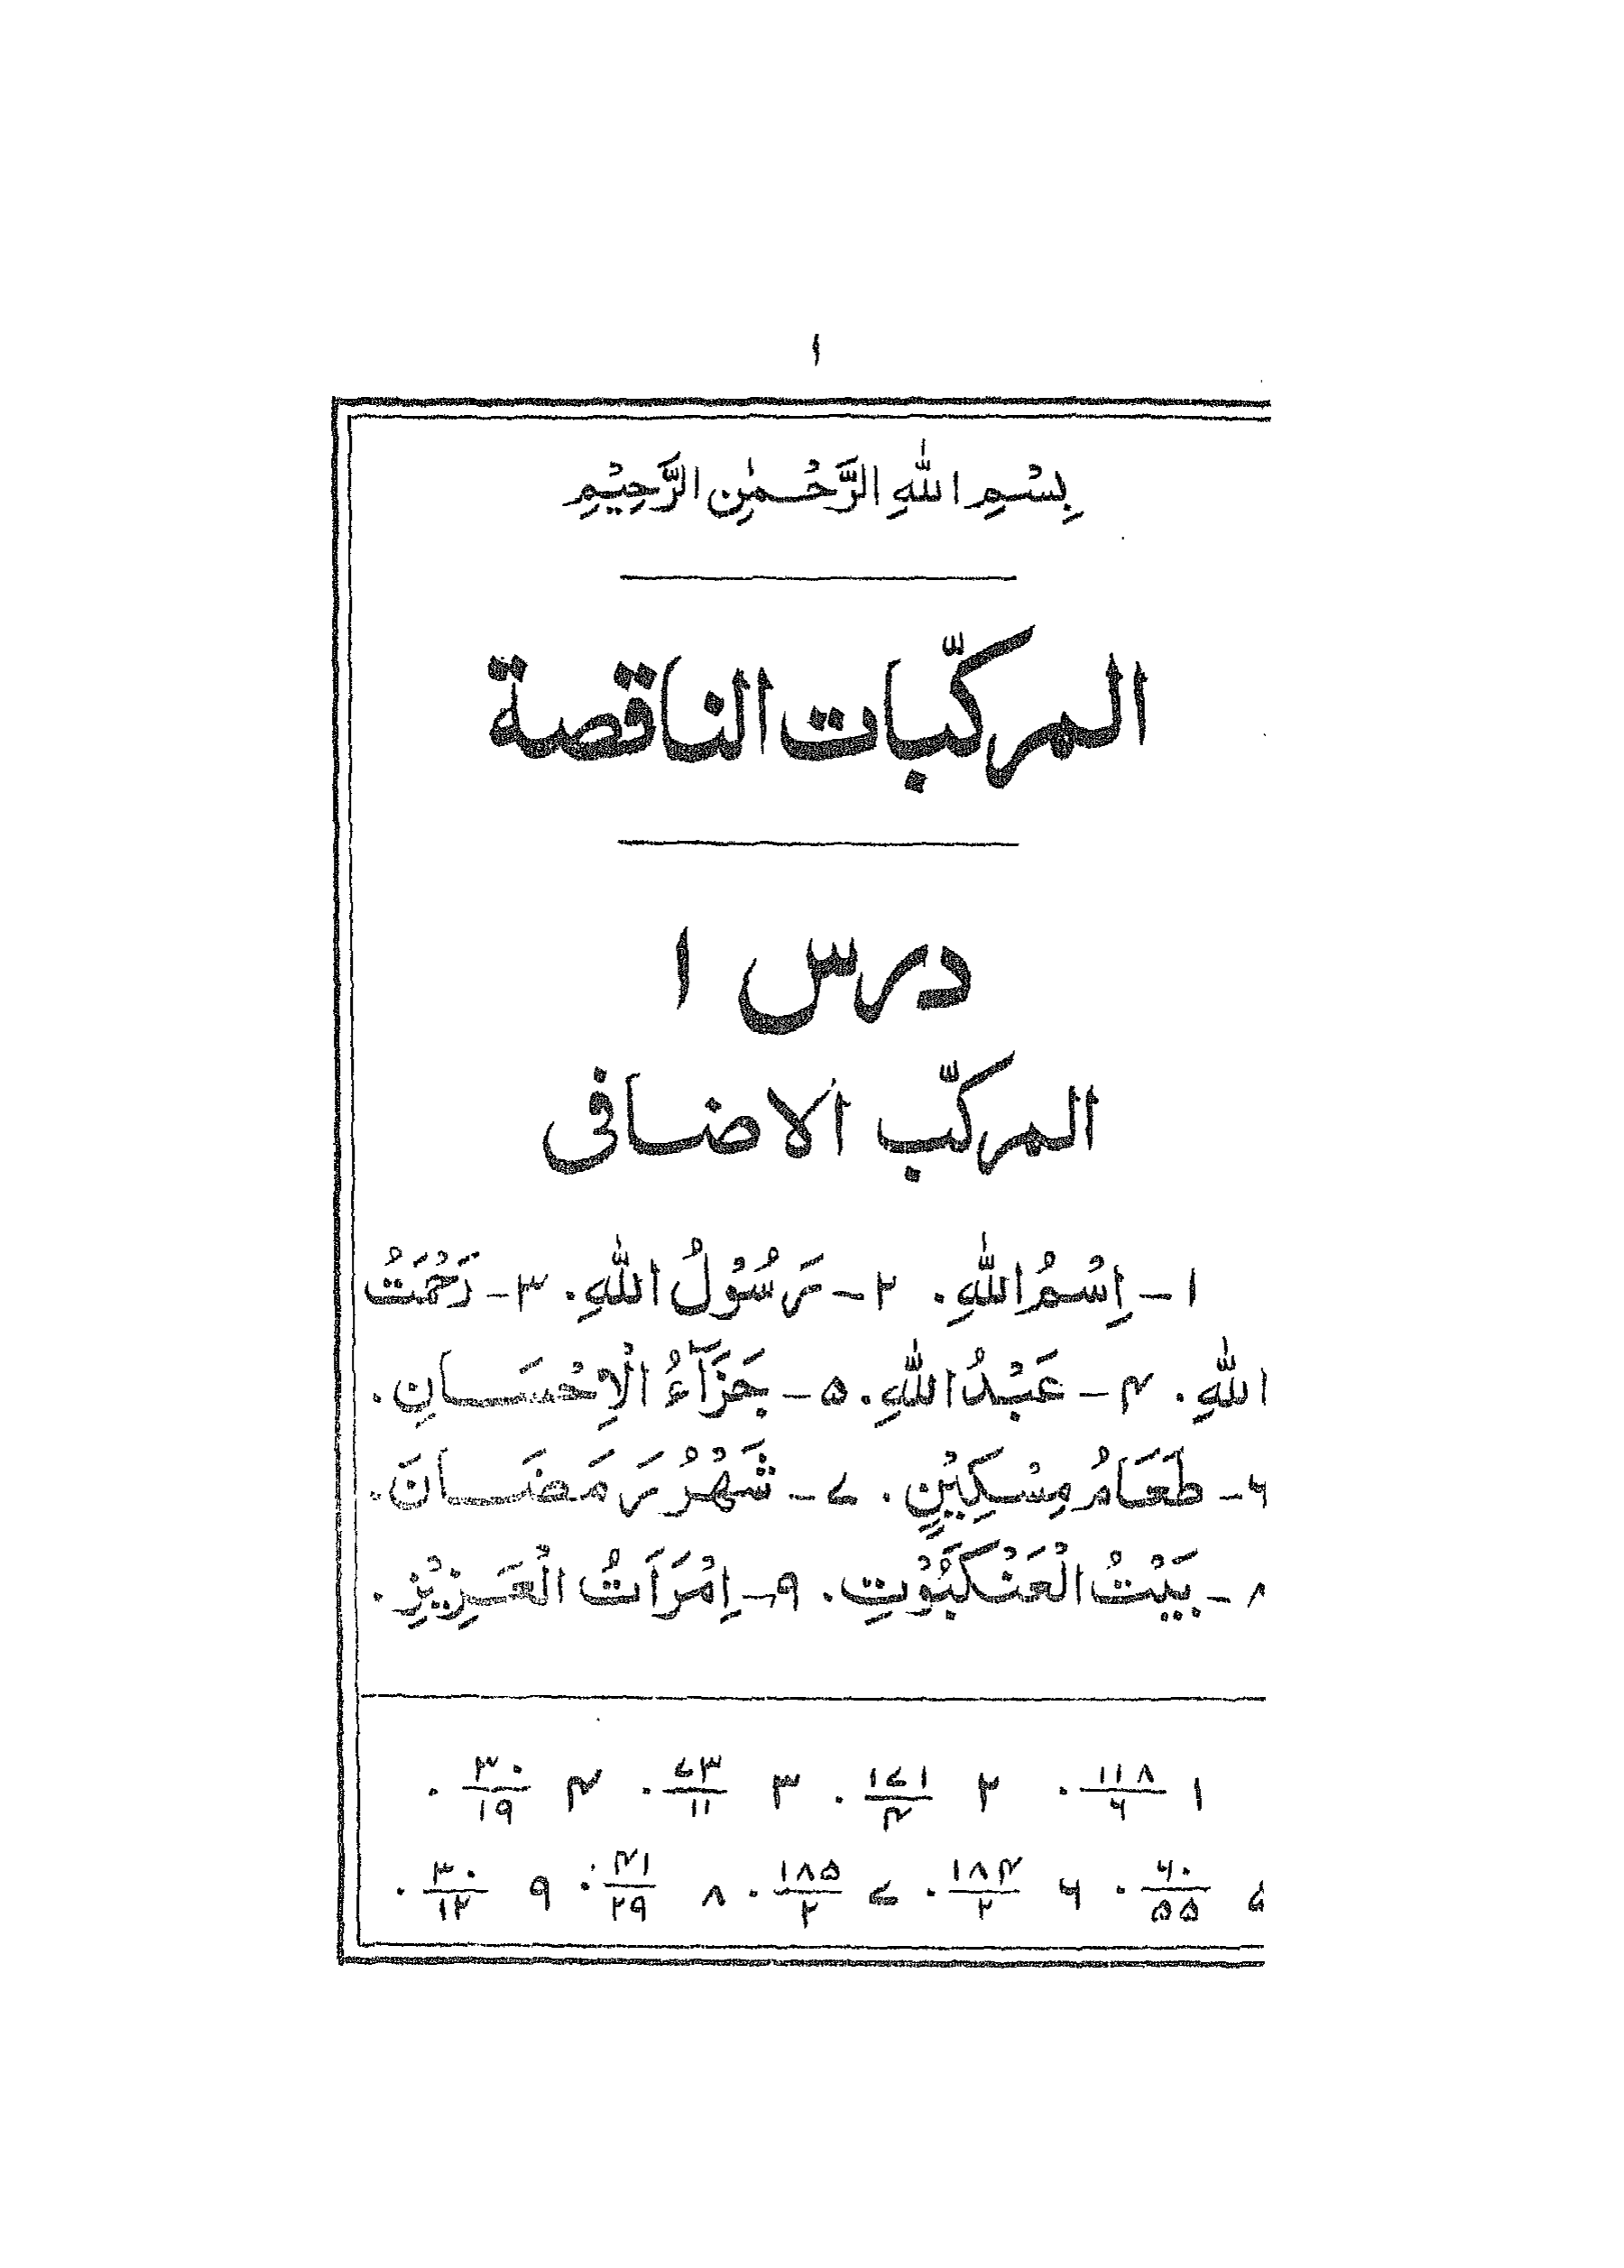 ۱
بِسْمِ اللّٰهِ الرَّحْمٰنِ الرَّحِيْمِ
المركّبات الناقصة
درس ۱
المركّب الاضافى
۱ - اِسْمُ اللّٰهِ. ۲ - رَسُوْلُ اللّٰهِ. ۳ - رَحْمَتُ
اللّٰهِ. ۴ - عَبْدُ اللّٰهِ. ۵ - جَزَآءُ الْاِحْسَانِ.
۶ - طَعَامُ مِسْكِيْنٍ. ۷ - شَهْرُ رَمَضَانَ.
۸ - بَيْتُ الْعَنْكَبُوْتِ. ۹ - اِمْرَاَتُ الْعَزِيْزِ.
۱ ۱۱۸/۶. ۲ ۱۷۱/۴. ۳ ۷۳/۱۱. ۴ ۳۰/۱۹.
۵ ۶۰/۵۵. ۶ ۱۸۴/۲. ۷ ۱۸۵/۲. ۸ ۴۱/۲۹. ۹ ۳۰/۱۲.